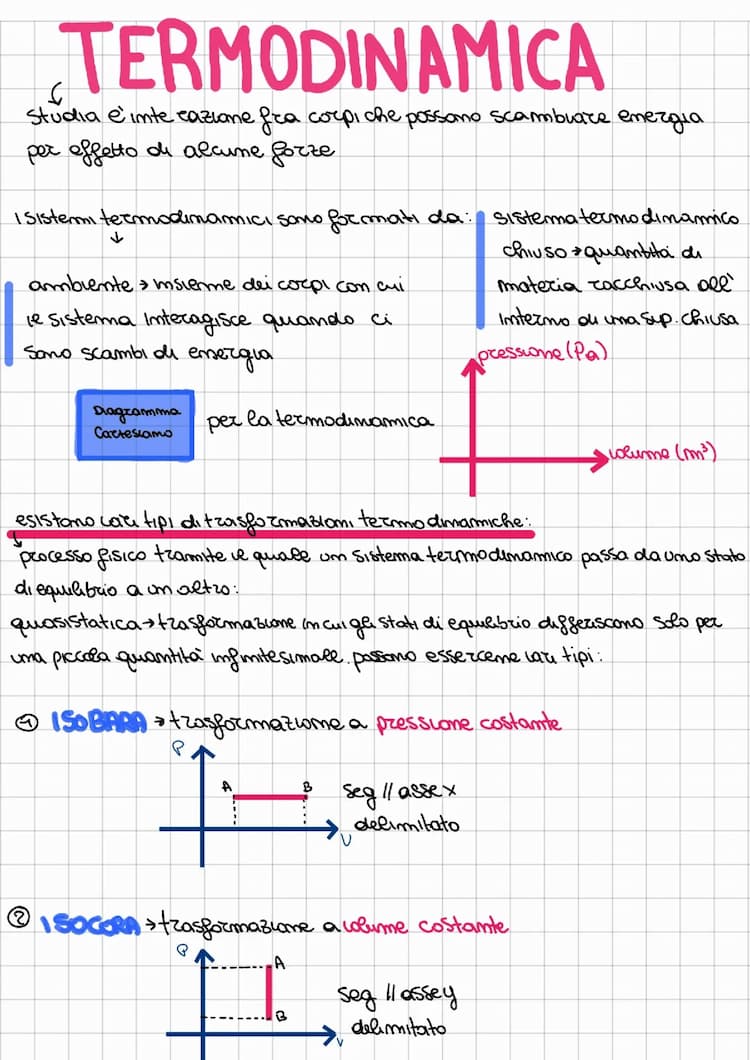 TERMODINAMICA
studia l'interazione fra corpi che possono scambiare energia
per effetto di alcune forze
I sistemi termodinamici sono formati da:
ambiente → insieme dei corpi con cui
il sistema interagisce quando ci
sono scambi di energia
sistema termodinamico
chiuso → quantità di
materia racchiusa all'
interno di una sup. chiusa
Diagramma
Cartesiano
per la termodinamica
pressione (Pa)
volume (m³)
esistono vari tipi di trasformazioni termodinamiche:
processo fisico tramite il quale un sistema termodinamico passa da uno stato
di equilibrio a un altro:
quasistatica → trasformazione in cui gli stati di equilibrio differiscono solo per
una piccola quantità infinitesimale. possono essercene vari tipi:
① ISOBARA → trasformazione a pressione costante
P
A B
V
seg // asse x
delimitato
② ISOCORA → trasformazione a volume costante
P
A
B
V
seg // asse y
delimitato